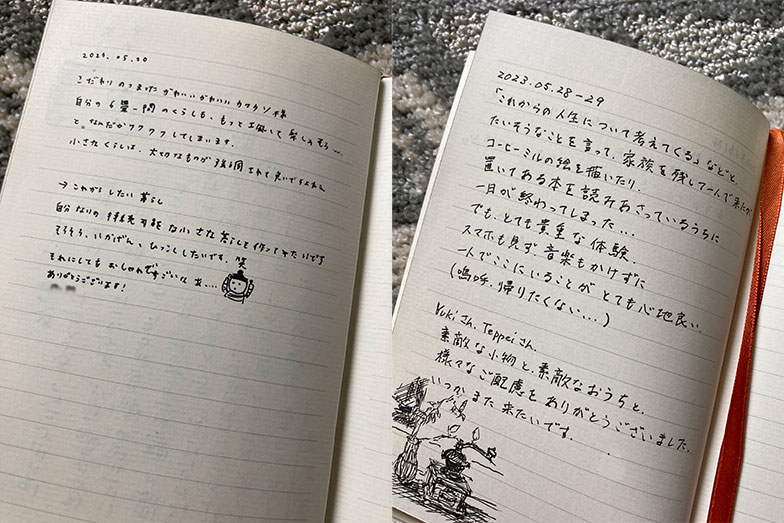 2023.05.20
こだわりのつまったかわいいかわいいカワウソ様
自分の6畳一間のくらしも、もっと工夫して楽しみそう…
と、なんだかワクワクしてしまいます。
小さなくらしは、大切なものが強調されて良いですよね
→これからしたい暮らし
自分なりの持続可能な小さな暮らしを作ってみたいです
そろそろ、いいかげん、ひっこししたいです。
それにしてもおしゃれですごいなあ…
ありがとうございます!
2023.05.28-29
「これからの人生について考えてくる」などと、
たいそうなことを言って、家族を残して一人で来たのに
コーヒーミルの絵を描いたり、
置いてある本を読みあさっているうちに
一日が終わってしまった…
でも、とても貴重な体験。
スマホも見ず、音楽もかけずに
一人でここにいることがとても心地良い。
(嗚呼、帰りたくない…)
Yukiさん、Teppeiさん、
素敵な小物と、素敵なおうちと、
様々なご配慮をありがとうございました。
いつかまた来たいです。